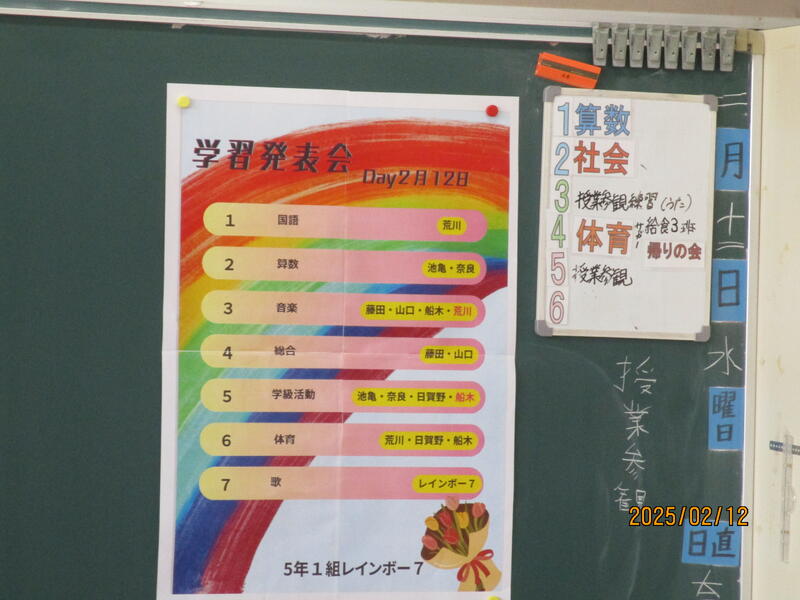 学習発表会
Day2月12日
1 国語 荒川
2 算数 池亀・奈良
3 音楽 藤田・山口・船木・荒川
4 総合 藤田・山口
5 学級活動 池亀・奈良・日賀野・船木
6 体育 荒川・日賀野・船木
7 歌 レインボー7
5年1組レインボー7
1 算数
2 社会
3 授業参観練習(うた)
4 体育 サッカー 給食3班
帰りの会
5 授業参観
6
二月十二日水曜日
授業参観
日直
2025/02/12